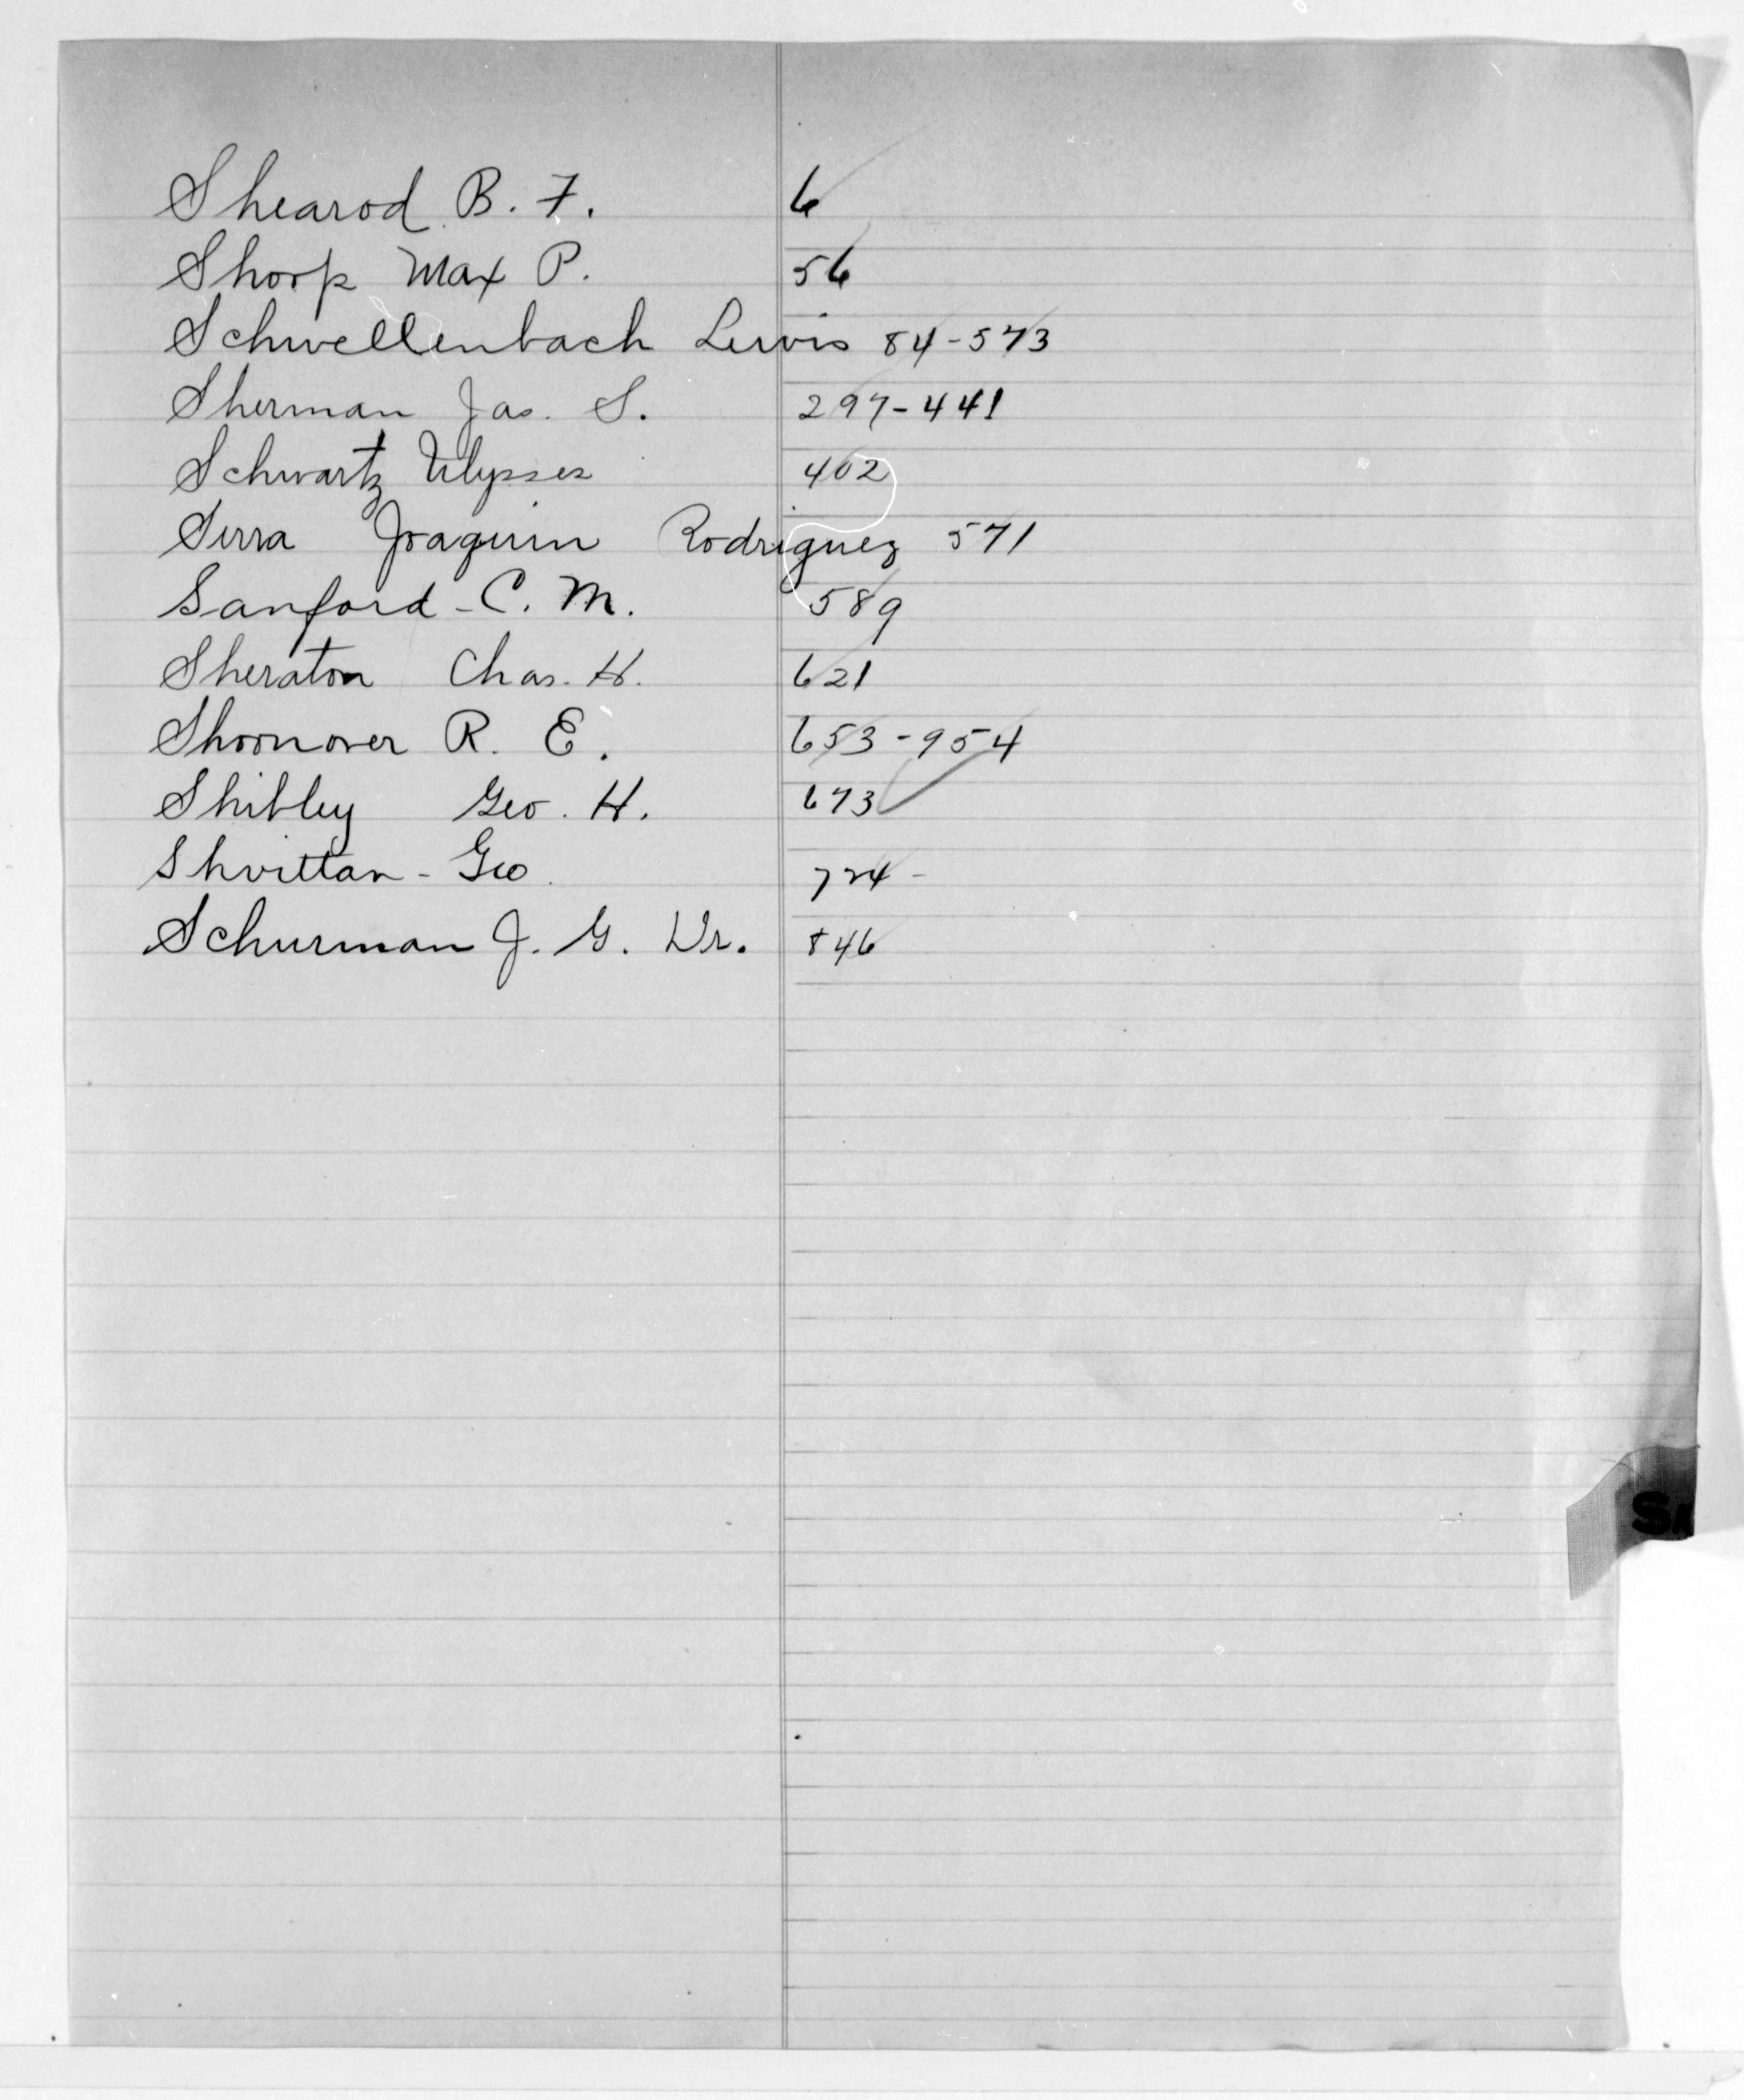 Shearod B. F. 6
Shorp Max P. 56
Schwellenbach Lewis 84-573
Sherman Jas. S. 297-441
Schwartz Ulysses 402
Serra Joaquin Rodriguez 571
Sanford - C. M. 589
Sheraton Chas. H. 621
Shoonover R. E. 653-954
Shibley Geo. H. 673
Geo 724-
Schurman J. G. Dr. 846